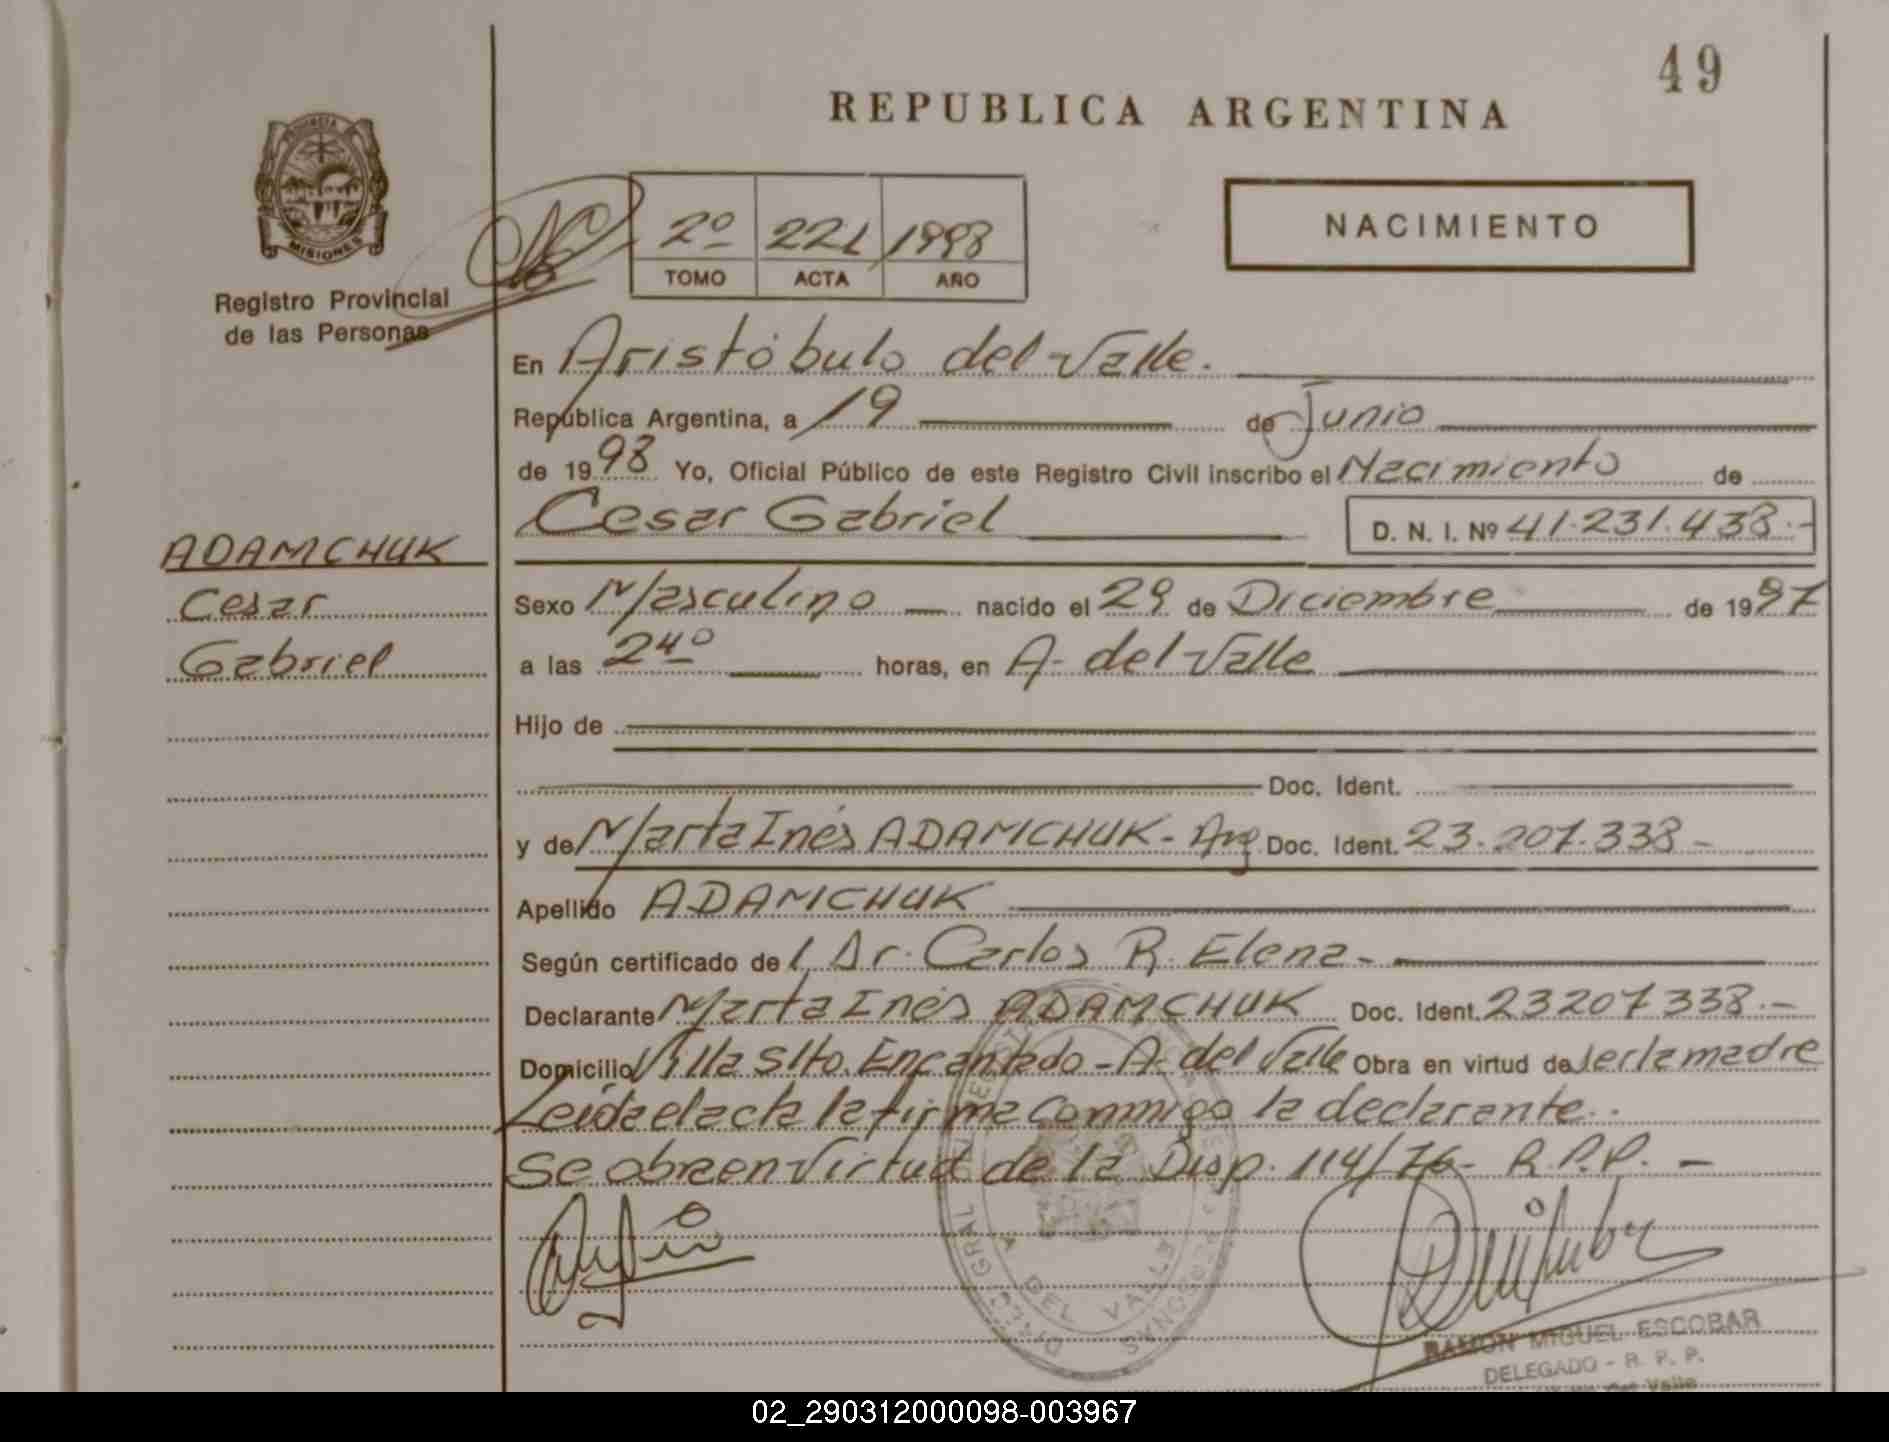 49
REPUBLICA ARGENTINA
PROVINCIA
MISIONES
Registro Provincial
de las Personas
2º 221 1998
TOMO ACTA AÑO
NACIMIENTO
En Aristóbulo del Valle.
República Argentina, a 19 de Junio
de 1998 Yo, Oficial Público de este Registro Civil inscribo el Nacimiento de
Cesar Gabriel D. N. I. Nº 41.231.438.-
ADAMCHUK
Cesar
Gabriel
Sexo Masculino nacido el 29 de Diciembre de 1997
a las 24º horas, en A. del Valle
Hijo de
Doc. Ident.
y de Marta Inés ADAMCHUK - Arg. Doc. Ident. 23.207.338-
Apellido ADAMCHUK
Según certificado de l Dr. Carlos R. Elena-
Declarante Marta Inés ADAMCHUK Doc. Ident. 23207338.-
Domicilio Villa Slto. Encantado - A. del Valle Obra en virtud de ser la madre
Leida el acta la firma conmigo la declarante.
Se obra en virtud de la Disp. 114/76- R.P.P. -
DEL VALLE
RAMON MIGUEL ESCOBAR
DELEGADO - R. P. P.
Del Valle
02_290312000098-003967